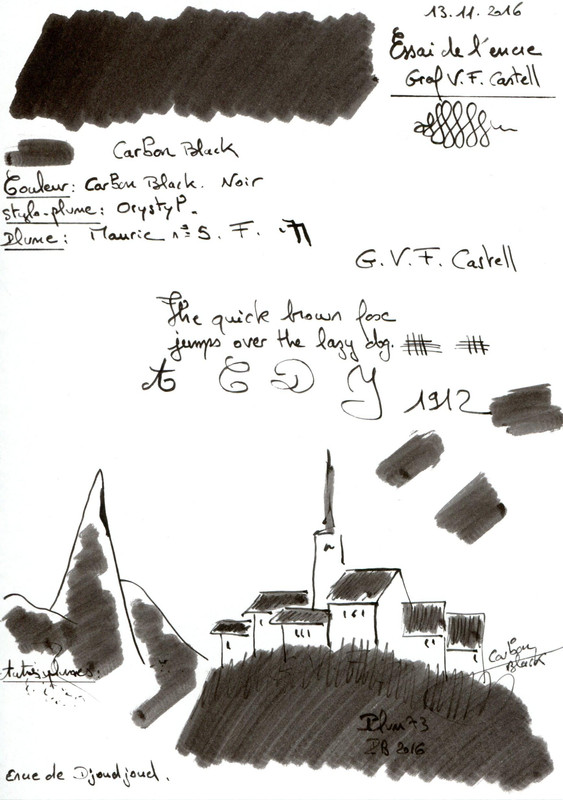 13.11.2016
Essai de l'encre
Graf V. F. Castell
Carbon Black
Couleur: Carbon Black. Noir
stylo-plume: Orysty P.
Plume: Mauric n° 5. F.
G. V. F. Castell
The quick brown fox
jumps over the lazy dog.
A C D Y 1912
Carbon
Black
Autres plumes:
Plum 73
PB 2016
Encre de Djoudjoud.